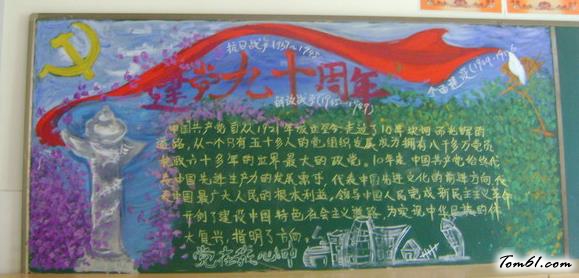 抗日战争(1937~1945
建党九十周年
解放战争(1945~1949)
中国共产党自从1921年成立至今走过了90年坎坷而光辉的
道路,从一个只有五十多人的党组织发展成为拥有八千多万党员
执政六十多年的世界最大的政党。90年来中国共产党始终代
表中国先进生产力的发展要求,代表中国先进文化的前进方向,代
表中国最广大人民的根本利益,领导中国人民完成新民主主义革命
开创了建设中国特色社会主义道路,为实现中华民族的伟
大复兴,指明了方向。
党在我心中
Tom61.com